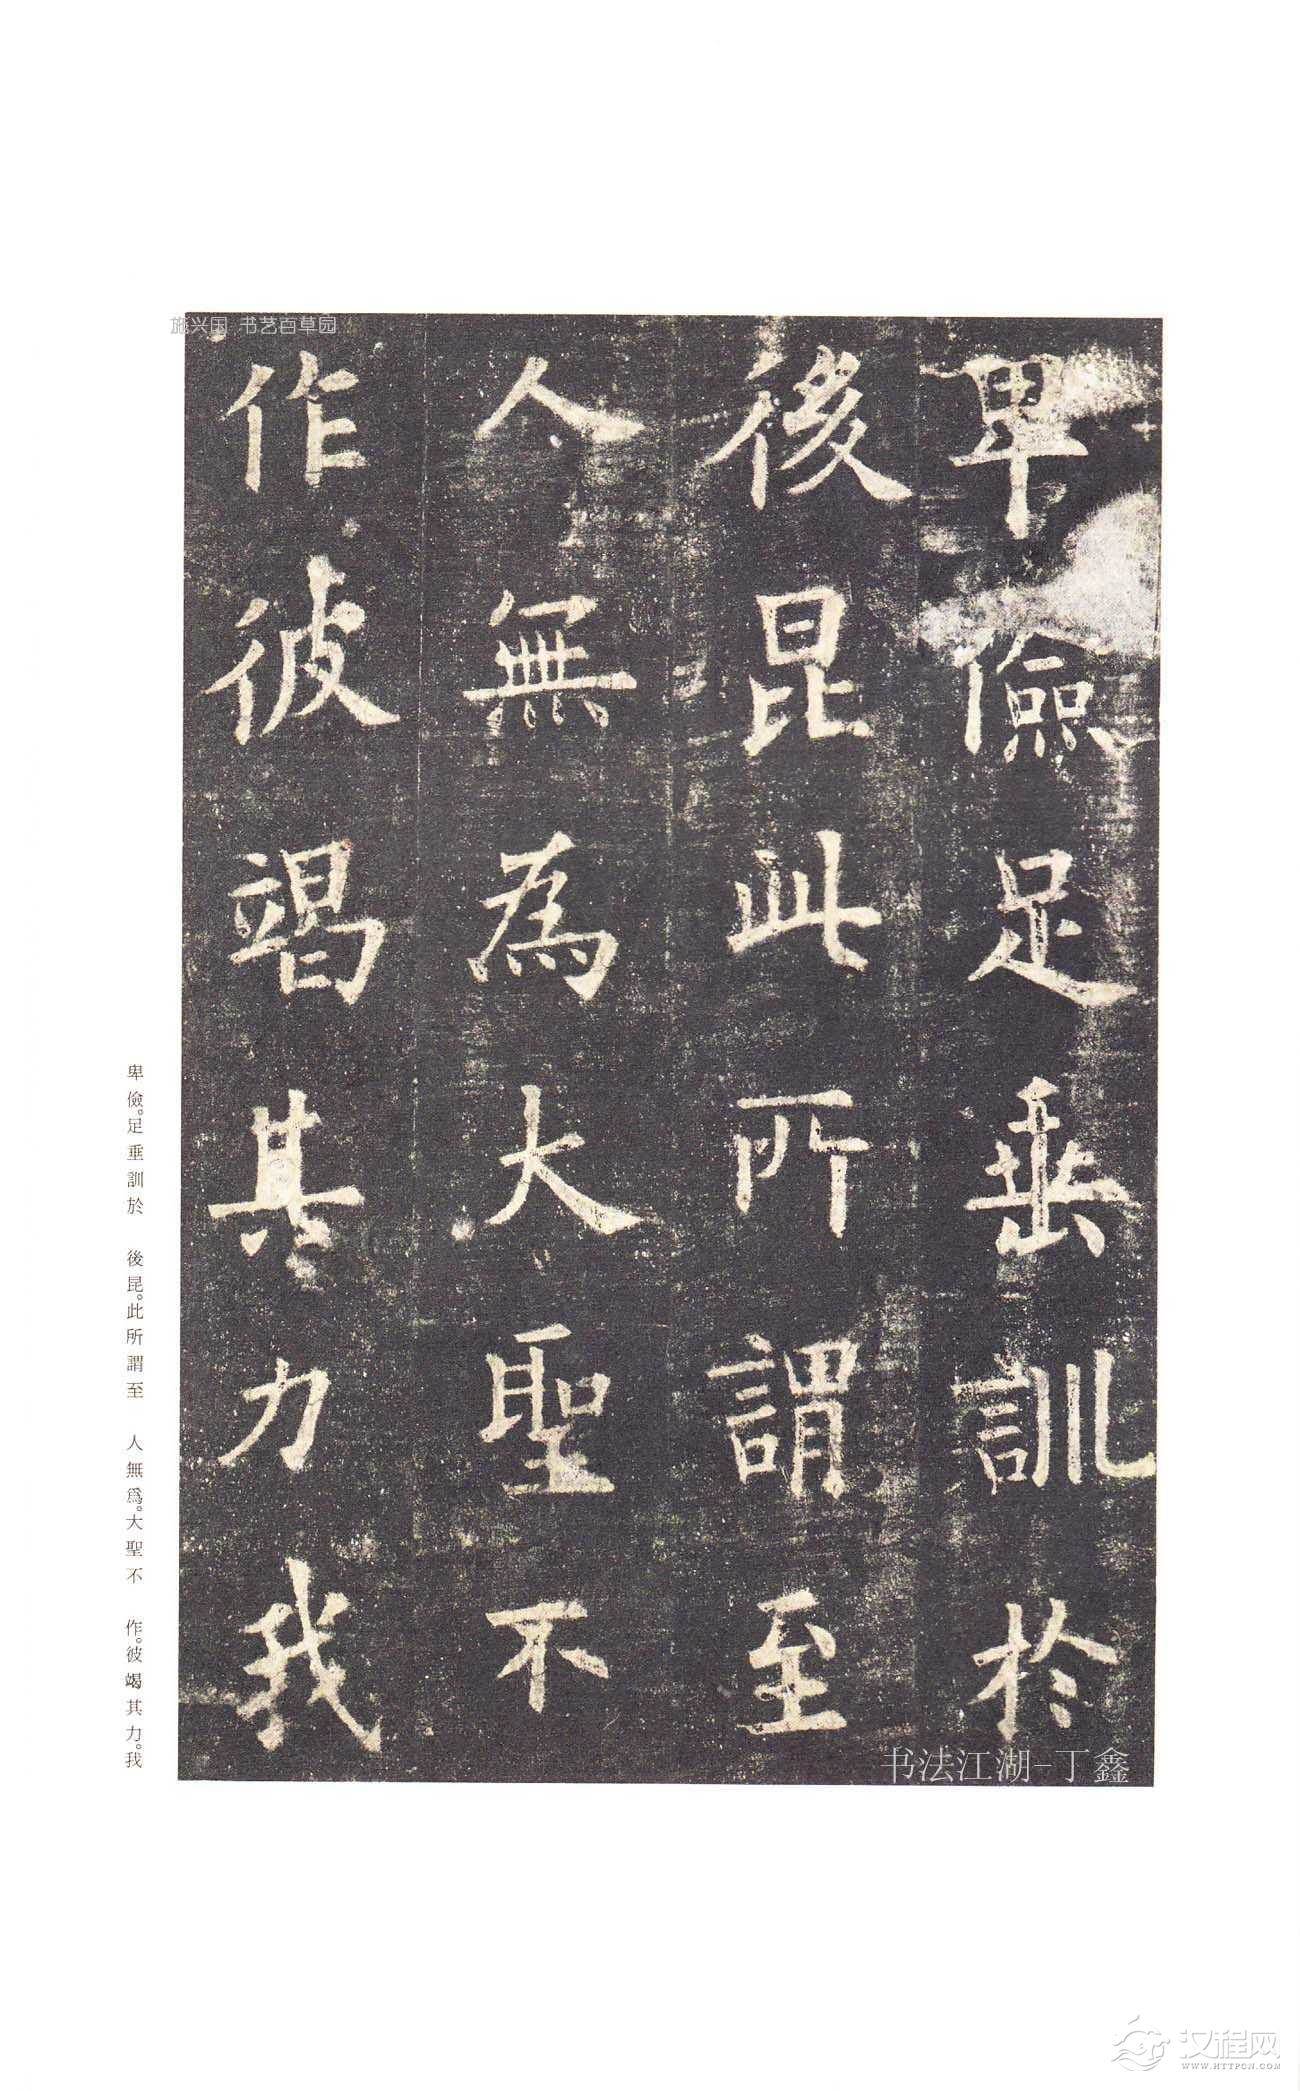 卑儉足垂訓於
後昆此所謂至
人無為大聖不
作彼竭其力我
卑儉。足垂訓於 後昆。此所謂至 人無爲。大聖不 作。彼竭其力。我
施兴国 书艺百草园
书法江湖-丁鑫
汉程网
WWW.HTTPCN.COM